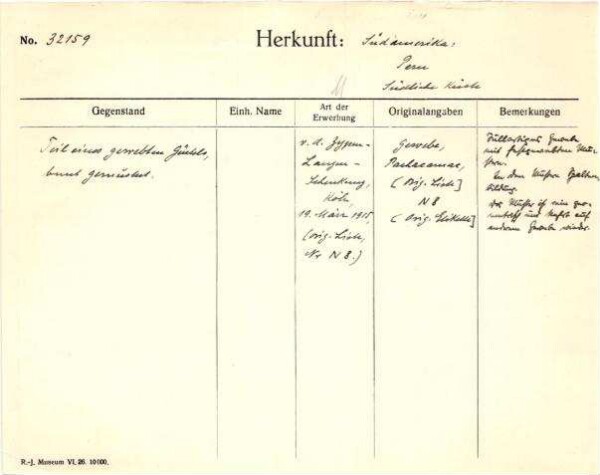 No. 32159
Herkunft: Südamerika:
Peru
Südliche Küste
Gegenstand
Einh. Name
Art der Erwerbung
Originalangaben
Bemerkungen
Teil eines gewebten Gürtels,
bunt gemustert.
v. d. Zypen-
Langen-
Schenkung,
Köln,
19. März 1915,
(orig. Liste,
Nr N 8.)
Gewebe,
Pachacamac,
(Orig. Liste]
N 8
(Orig. Etikette]
mit
In den
Das Muster ist ein
und kehrt auf
anderen Gewebe wieder.
R.-J. Museum VI. 26. 10000.